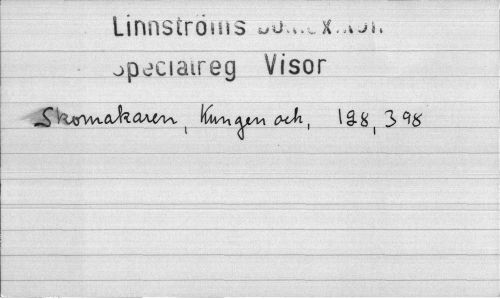 Linnströms
Specialreg Visor
Skomakaren, Kungen och, 198, 398